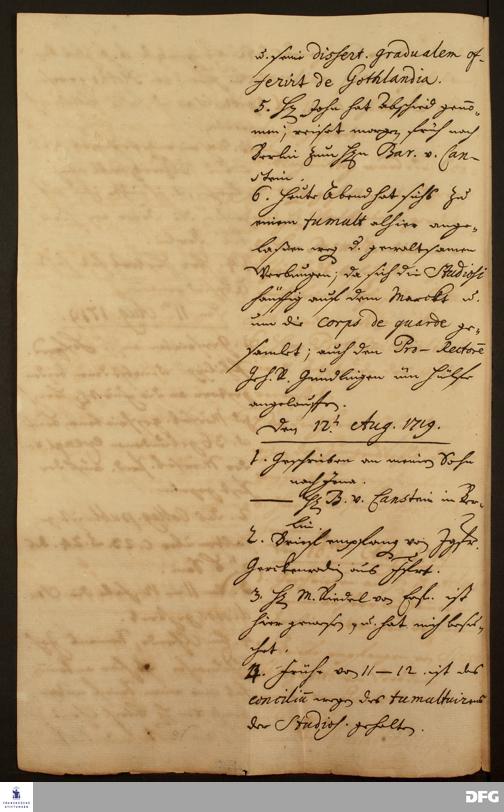 u. seine dissert. gradualem of-
ferirt de Gothlandia.
5. Hr. John hat Abschied genom-
men, reiset morgen früh nach
Berlin zum Hrn Bar. v. Can-
stein.
6. Heute Abend hat sichs zu
einem tumult alhier ange-
laßen weg. d. gewaltsamen
Werbungen; da sich die Studiosi
häuffig auf dem Marckt u.
um die corps de guarde ge-
samlet; auch den Pro-Rectorem
Geh. R. Gundlingen üm Hülfe
angelauffen.
Den 12t. Aug. 1719.
1. Geschrieben an meinen Sohn
nach Jena.
— Hr. B. v. Canstein in Ber-
lin.
2. Brief empfang von Jgfr.
aus
3. Hr M. Riedel von Erf. ist
hier gewesen, u. hat mich besu-
chet.
4. Frühe von 11–12. ist das
concilium wegen des tumultuirens
der Studios. gehalten.
FRANCKESCHE STIFTUNGEN
DFG